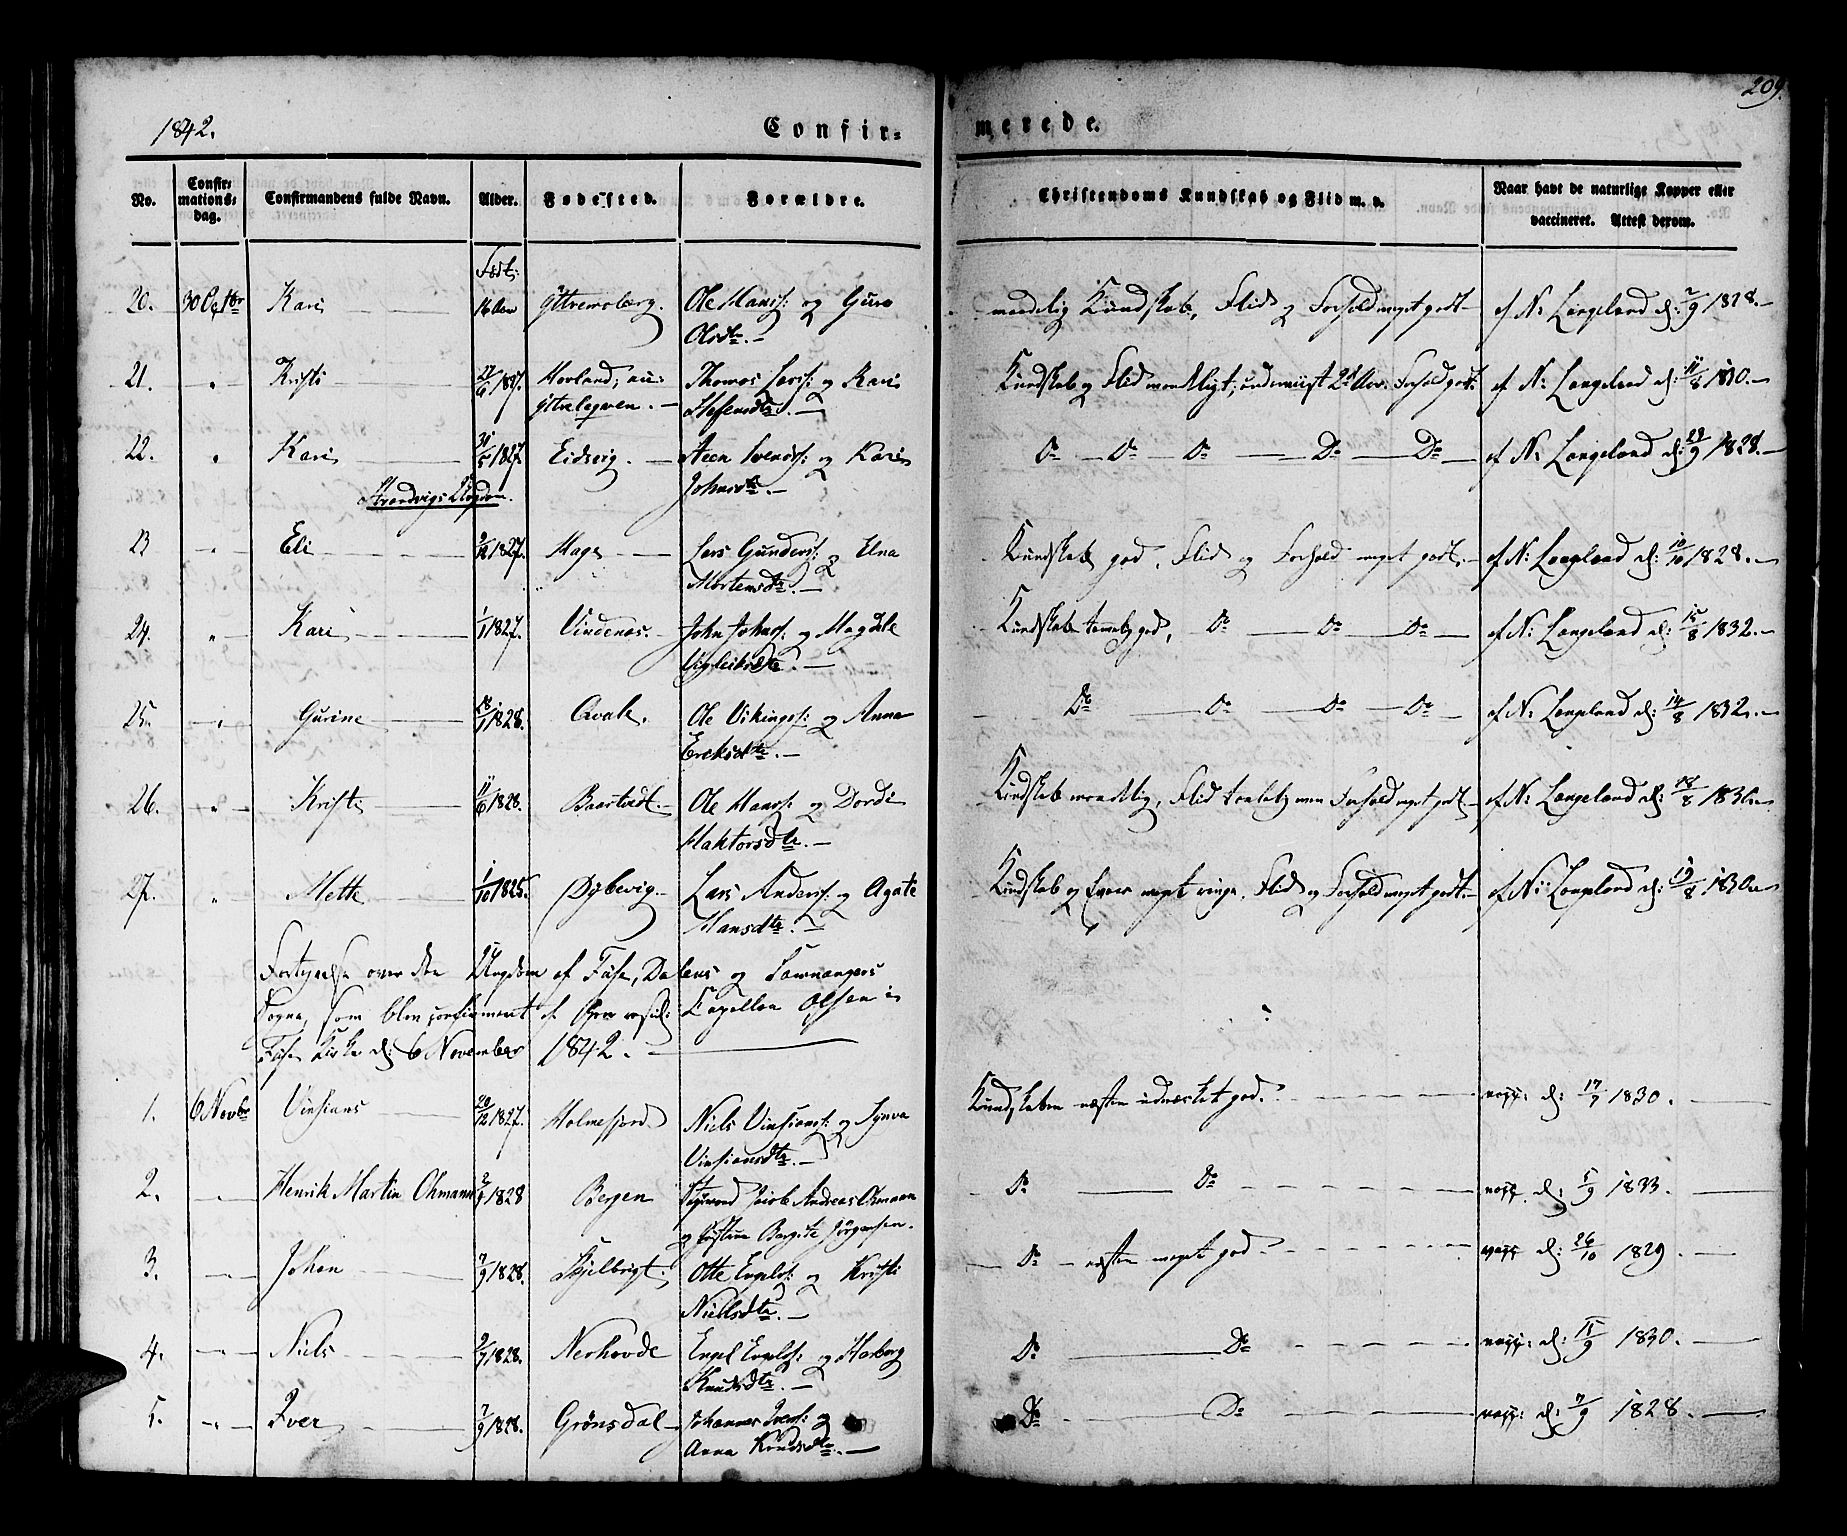 1842.
Confir=
merede.
209.
No.
Confir= mations= dag.
Confirmandens fulde Navn.
Alder.
Fødested.
Forældre.
Christendoms Kundskab og Flid m. v.
Naar havt de naturlige Kopper eller vaccineret. Attest derom.
Født:
20. 30 Octbr Kari 16 Aar Yttremsberg. Ole Hanss: og Guro
Olsdtr.
Kundskab, Flid og Forhold meget godt
af N: Langeland d: 7/9 1828.
21. " Kristi 1827. Hovland, Thomas Larss: og Kari
Yttrelegven.
Kundskab og Flid Forhold godt:
af N: Langeland d: 11/8 1830.
22. " Kari 31/5 1827. Eidsvig. Sveinss: og Kari
Johnsdtr.
Do Do Do Do Do
af N: Langeland d: 29/9 1828.
Strandvigs Ungdom.
23 " Eli 9/12 1827. Hage Lars Gunderss: og Elna
Mortensdtr.
Kundskab god, Flid og Forhold meget godt,
af N: Langeland d: 10/10 1828.
24. " Kari 1/1 1827. Vindenes. John Johnss: og Magdele
Kundskab temelig god, Do Do Do
af N: Langeland d: 15/8 1832.
25. " Gurine 28/1 1828. Qvale. Ole Vikingss: og Anna
Ericksdtr.
Do Do Do Do
af N: Langeland d: 14/8 1832.
26. " Kristi 11/6 1828. Ole Hanss: og Dordi
Haktorsdtr.
Kundskab maadelig, Flid Forhold meget godt,
af N: Langeland d: 18/8 1830.
27. " Mette 1/10 1825. Dybevig. Lars Anderss: og Agate
Hansdtr.
Kundskab og Evner meget ringe, Flid og Forhold meget godt.
af N: Langeland d: 19/8 1830.
Fortegnelse over den Ungdom af Fuse, Dalens og Samnangers
Sogne, som blev confirmeret af Capellan Olsen i
Fuse Kirke d: 6 November 1842.
1. 6 Novbr Vinsians 20/12 1827. Holmefjord Niels Vinsianss: og Synva
Vinsiansdtr.
Kundskaben næsten udmærket god.
vacc: d: 17/7 1830.
2. " Henrik Martin Ohmann 1828 Bergen Jacob Andreas Ohmann
og Justine Bergite Jørgensen.
Do Do
vacc. d: 5/9 1833.
3. " Johan 7/9 1828. Skjelbrejt. Otte Engelss: og Kristi
Nielsdtr.
Do næsten meget god.
vacc d: 26/10 1829.
4. " Niels 1828. Nerhovde Engel Engelss: og Harborg
Knudsdtr.
Do Do
vacc: d: 15/9 1830.
5. " Iver 7/9 1828. Grønsdal Johannes Iverss: og
Anna Knudsdtr.
Do Do
vacc: d: 7/9 1828.